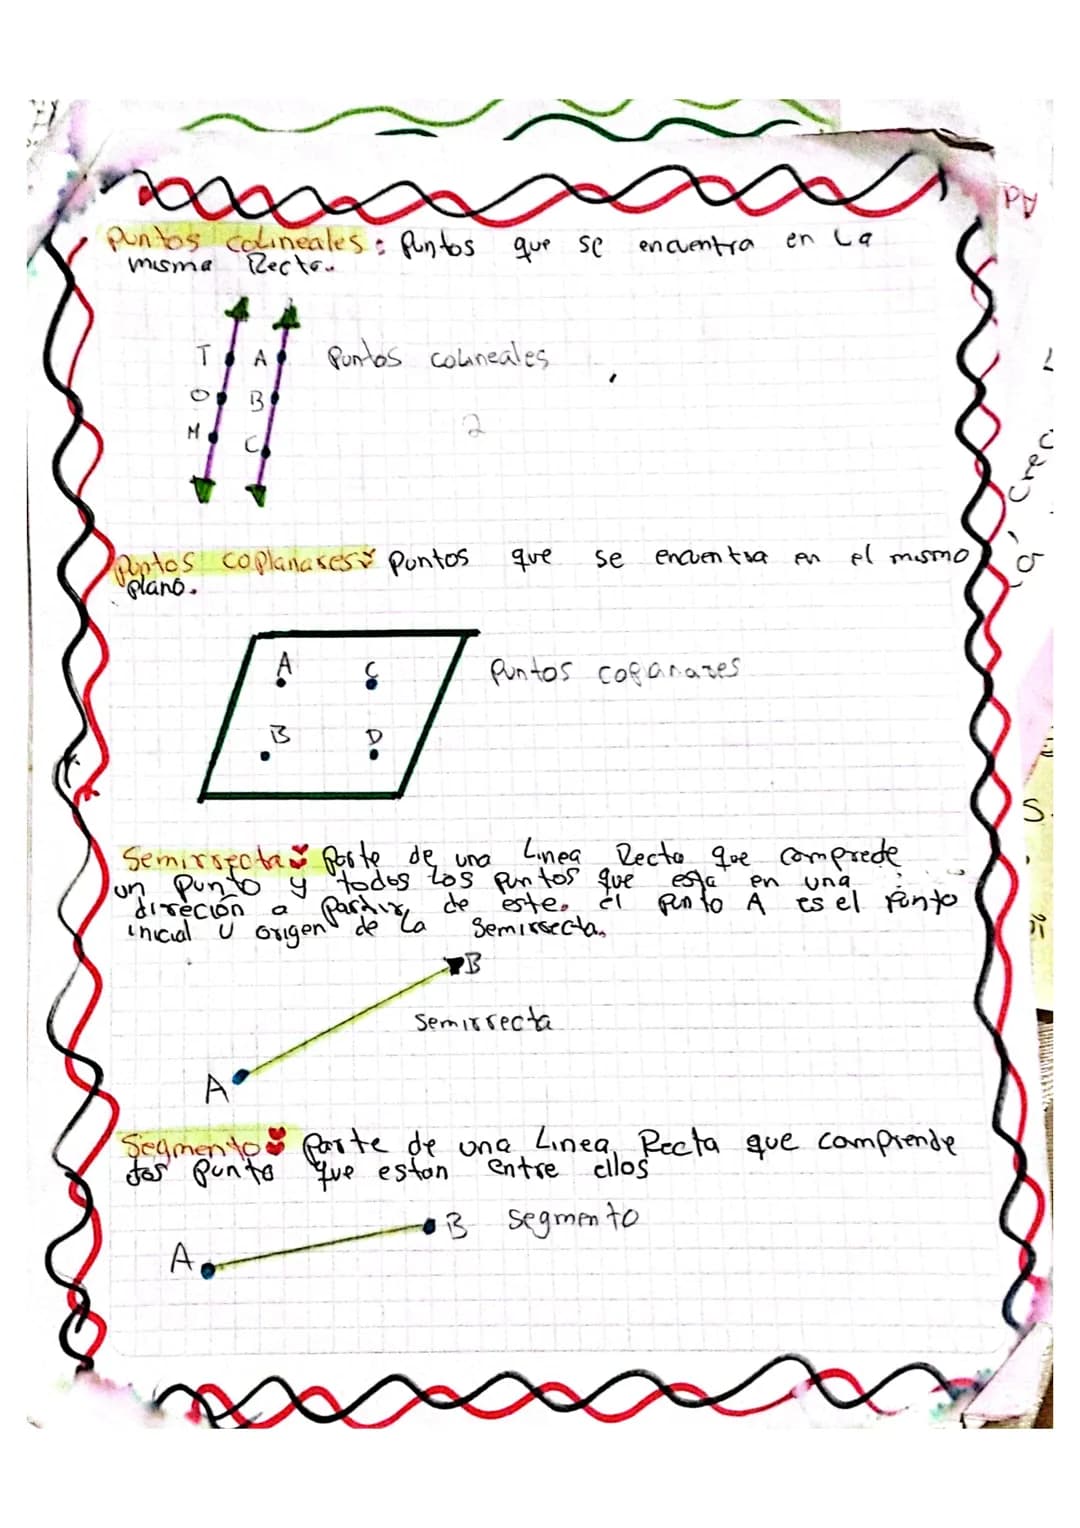 Puntos colineales: Puntos que se encuentra en La
misma Recta.
T A Puntos colineales
O B
2
M C
Puntos coplanares: Puntos que se encuentra en el mismo
plano.
A C Puntos copanares
B D
Semirrecta: Parte de una Linea Recta que comprede
un punto y todos los puntos que esta en una
direción a partir de este. el punto A es el punto
inicial u origen de la Semirrecta.
B
Semirrecta
A
Segmento: Parte de una Linea Recta que comprende
dos punto que estan entre ellos
B segmento
A